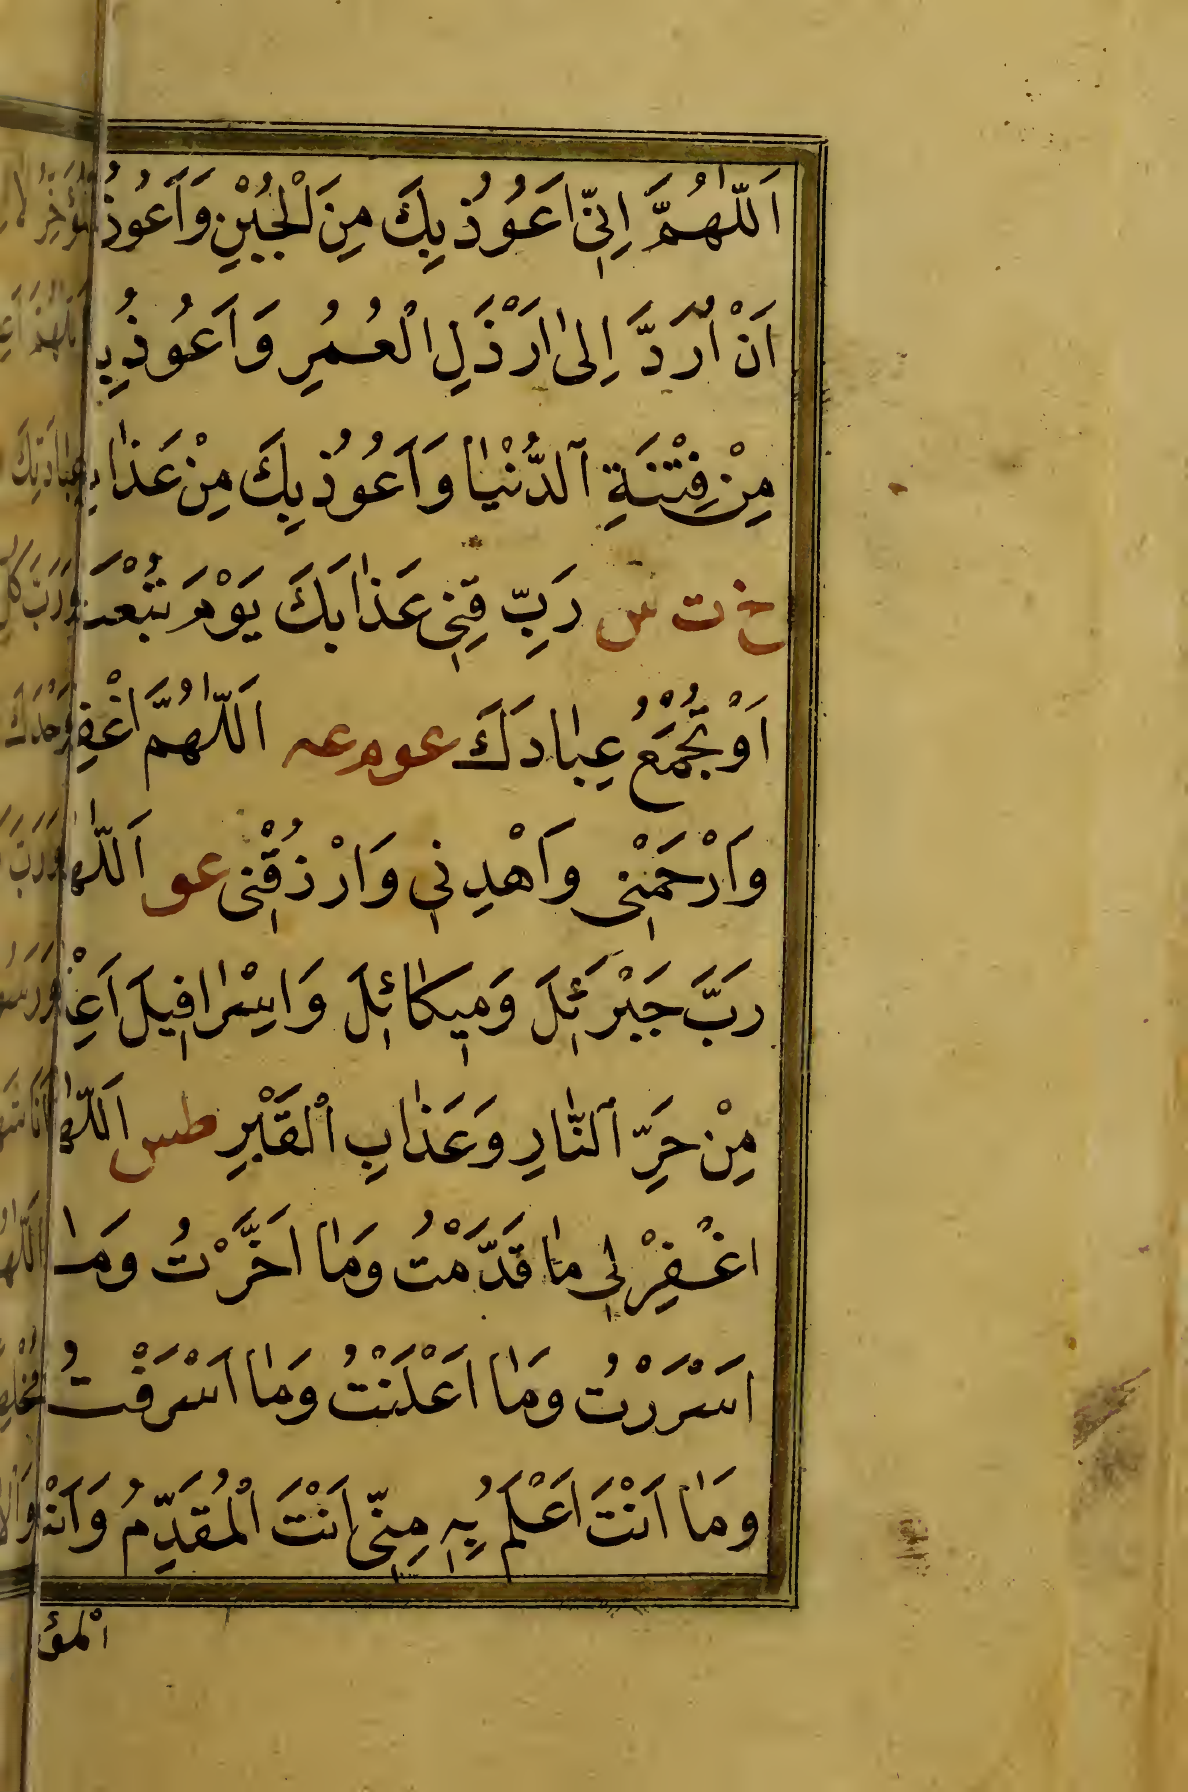 اَللّٰهُمَّ اِنِّي اَعُوُذُ بِكَ مِنَ الْجُبْنِ وَاَعُوذُ
اَنْ اُرَدَّ اِلىٰ اَرْذَلِ الْعُمُرِ وَاَعُوذُ بِ
مِنْ فِتْنَةِ الدُّنْيٰا وَاَعُوُذُ بِكَ مِنْ عَذٰابِ
خ ت س رَبِّ قِنِي عَذٰابَكَ يَوْمَ تَبْعَث
اَوْ تَجْمَعُ عِبٰادَكَ عو مر عه اَللّٰهُمَّ اغْفِر
وَارْحَمْنِي وَاهْدِنِي وَارْزُقْنِي عو اَللّٰهُ
رَبَّ جَبْرَئِلَ وَمِيكٰائِلَ وَاِسْرٰافِيلَ اَعِذْ
مِنْ حَرِّ النّٰارِ وَعَذٰابِ الْقَبْرِ طس اَللّٰهُ
اغْفِرْ لِي مٰا قَدَّمْتُ وَمٰا اَخَّرْتُ وَمٰا
اَسْرَرْتُ وَمٰا اَعْلَنْتُ وَمٰا اَسْرَفْتُ
وَمٰا اَنْتَ اَعْلَمُ بِهِ مِنِّي اَنْتَ الْمُقَدِّمُ وَاَنْتَ
الْمؤ